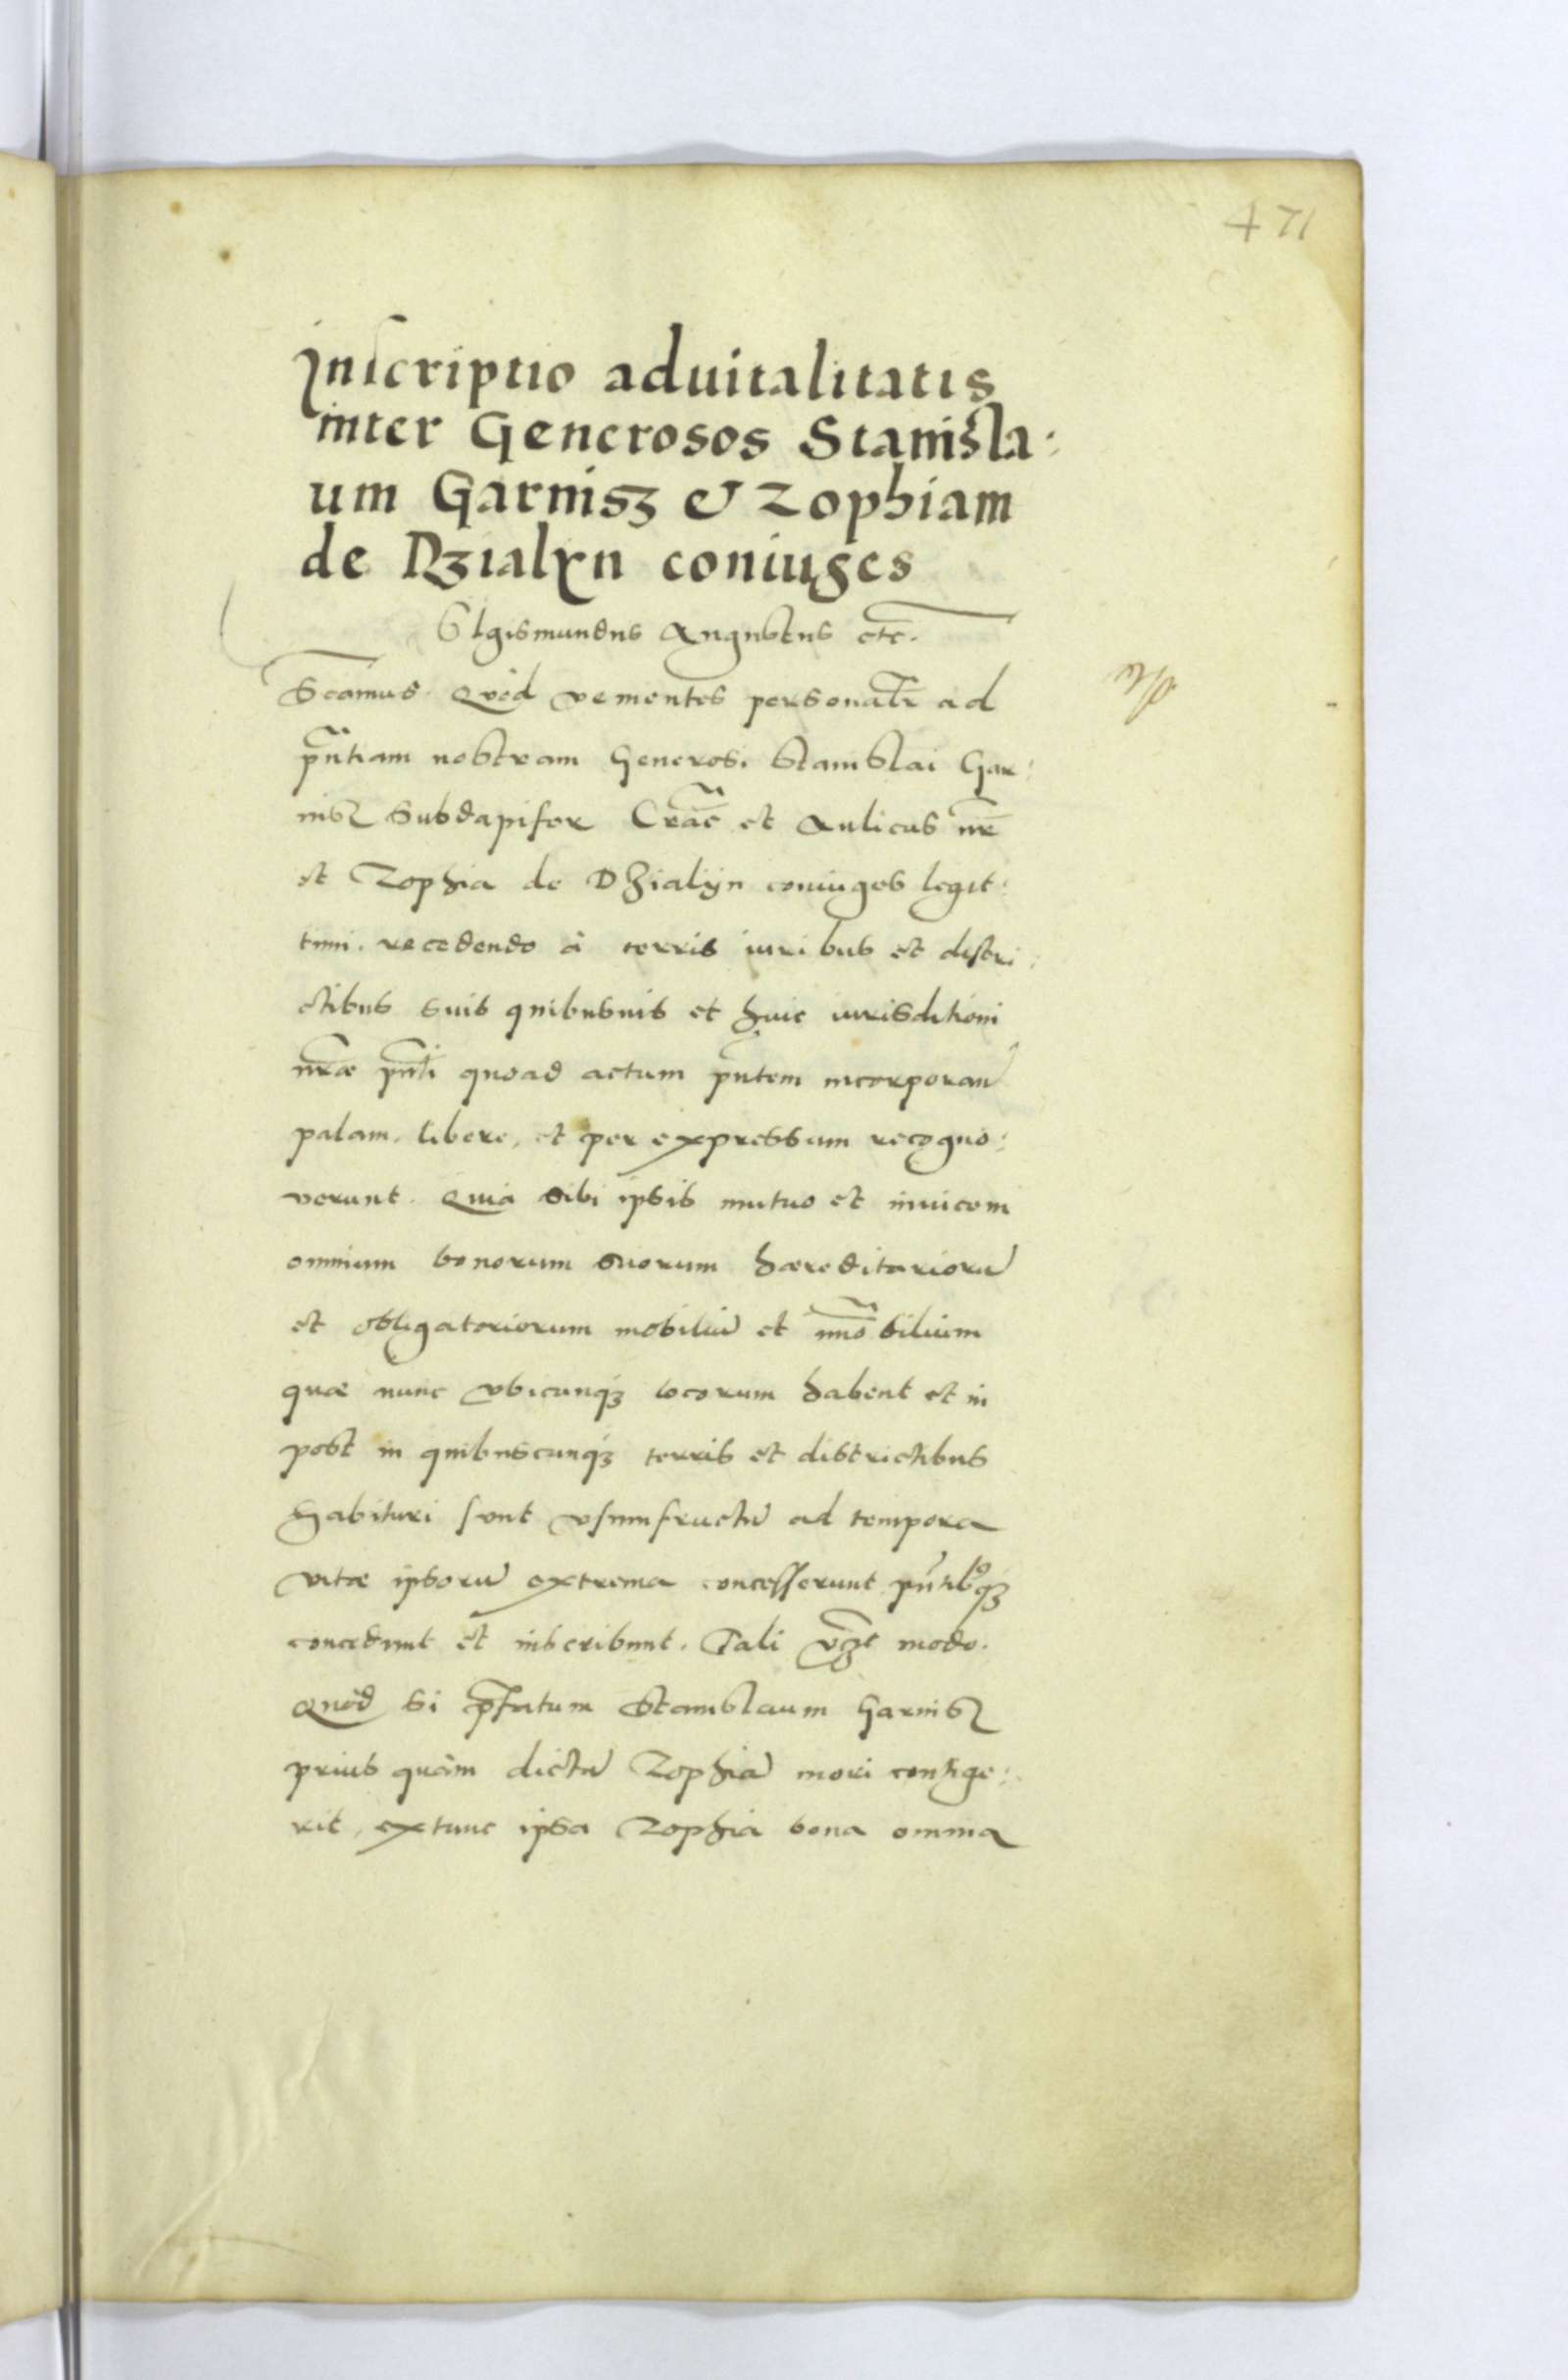 471
Inscriptio aduitalitatis
inter Generosos Stanisla:
um Garnisz & Zophiam
de Dzialyn coniuges
SIgismundus Augustus etc̄.
Scamus. Quòd venientes personalr̄ ad
pn̄tiam nostram Generosi Stanislai Gar:
nisz Subdapifer Crac̄ et Aulicus nr̄
et Zophia de Dzialÿn coniuges legit:
timi. recedendo à terris iuribus et distri:
ctibus suis quibusuis et huic iurisditioni
nr̄æ pn̄ti quoad actum pn̄tem incorporan̄
palam. libere, et per expressum recogno:
verunt. Quia sibi ipsis mutuo et inuicem
omnium bonorum suorum hæreditariorū
et obligatoriorum mobiliū et im̄obilium
quæ nunc vbicunq₃ locorum habent et in
post in quibuscunq₃ terris et districtibus
habituri sunt vsumfructū ad tempora
vitæ ipsorū extrema concesserunt pn̄tib⁹q₃
concedunt et inscribunt. Tali vz̄t modo.
Quòd si p̄fatum Stanislaum Garnisz
prius quàm dictā Zophiā mori contige:
rit, extunc ipsa Zophia bona omnia